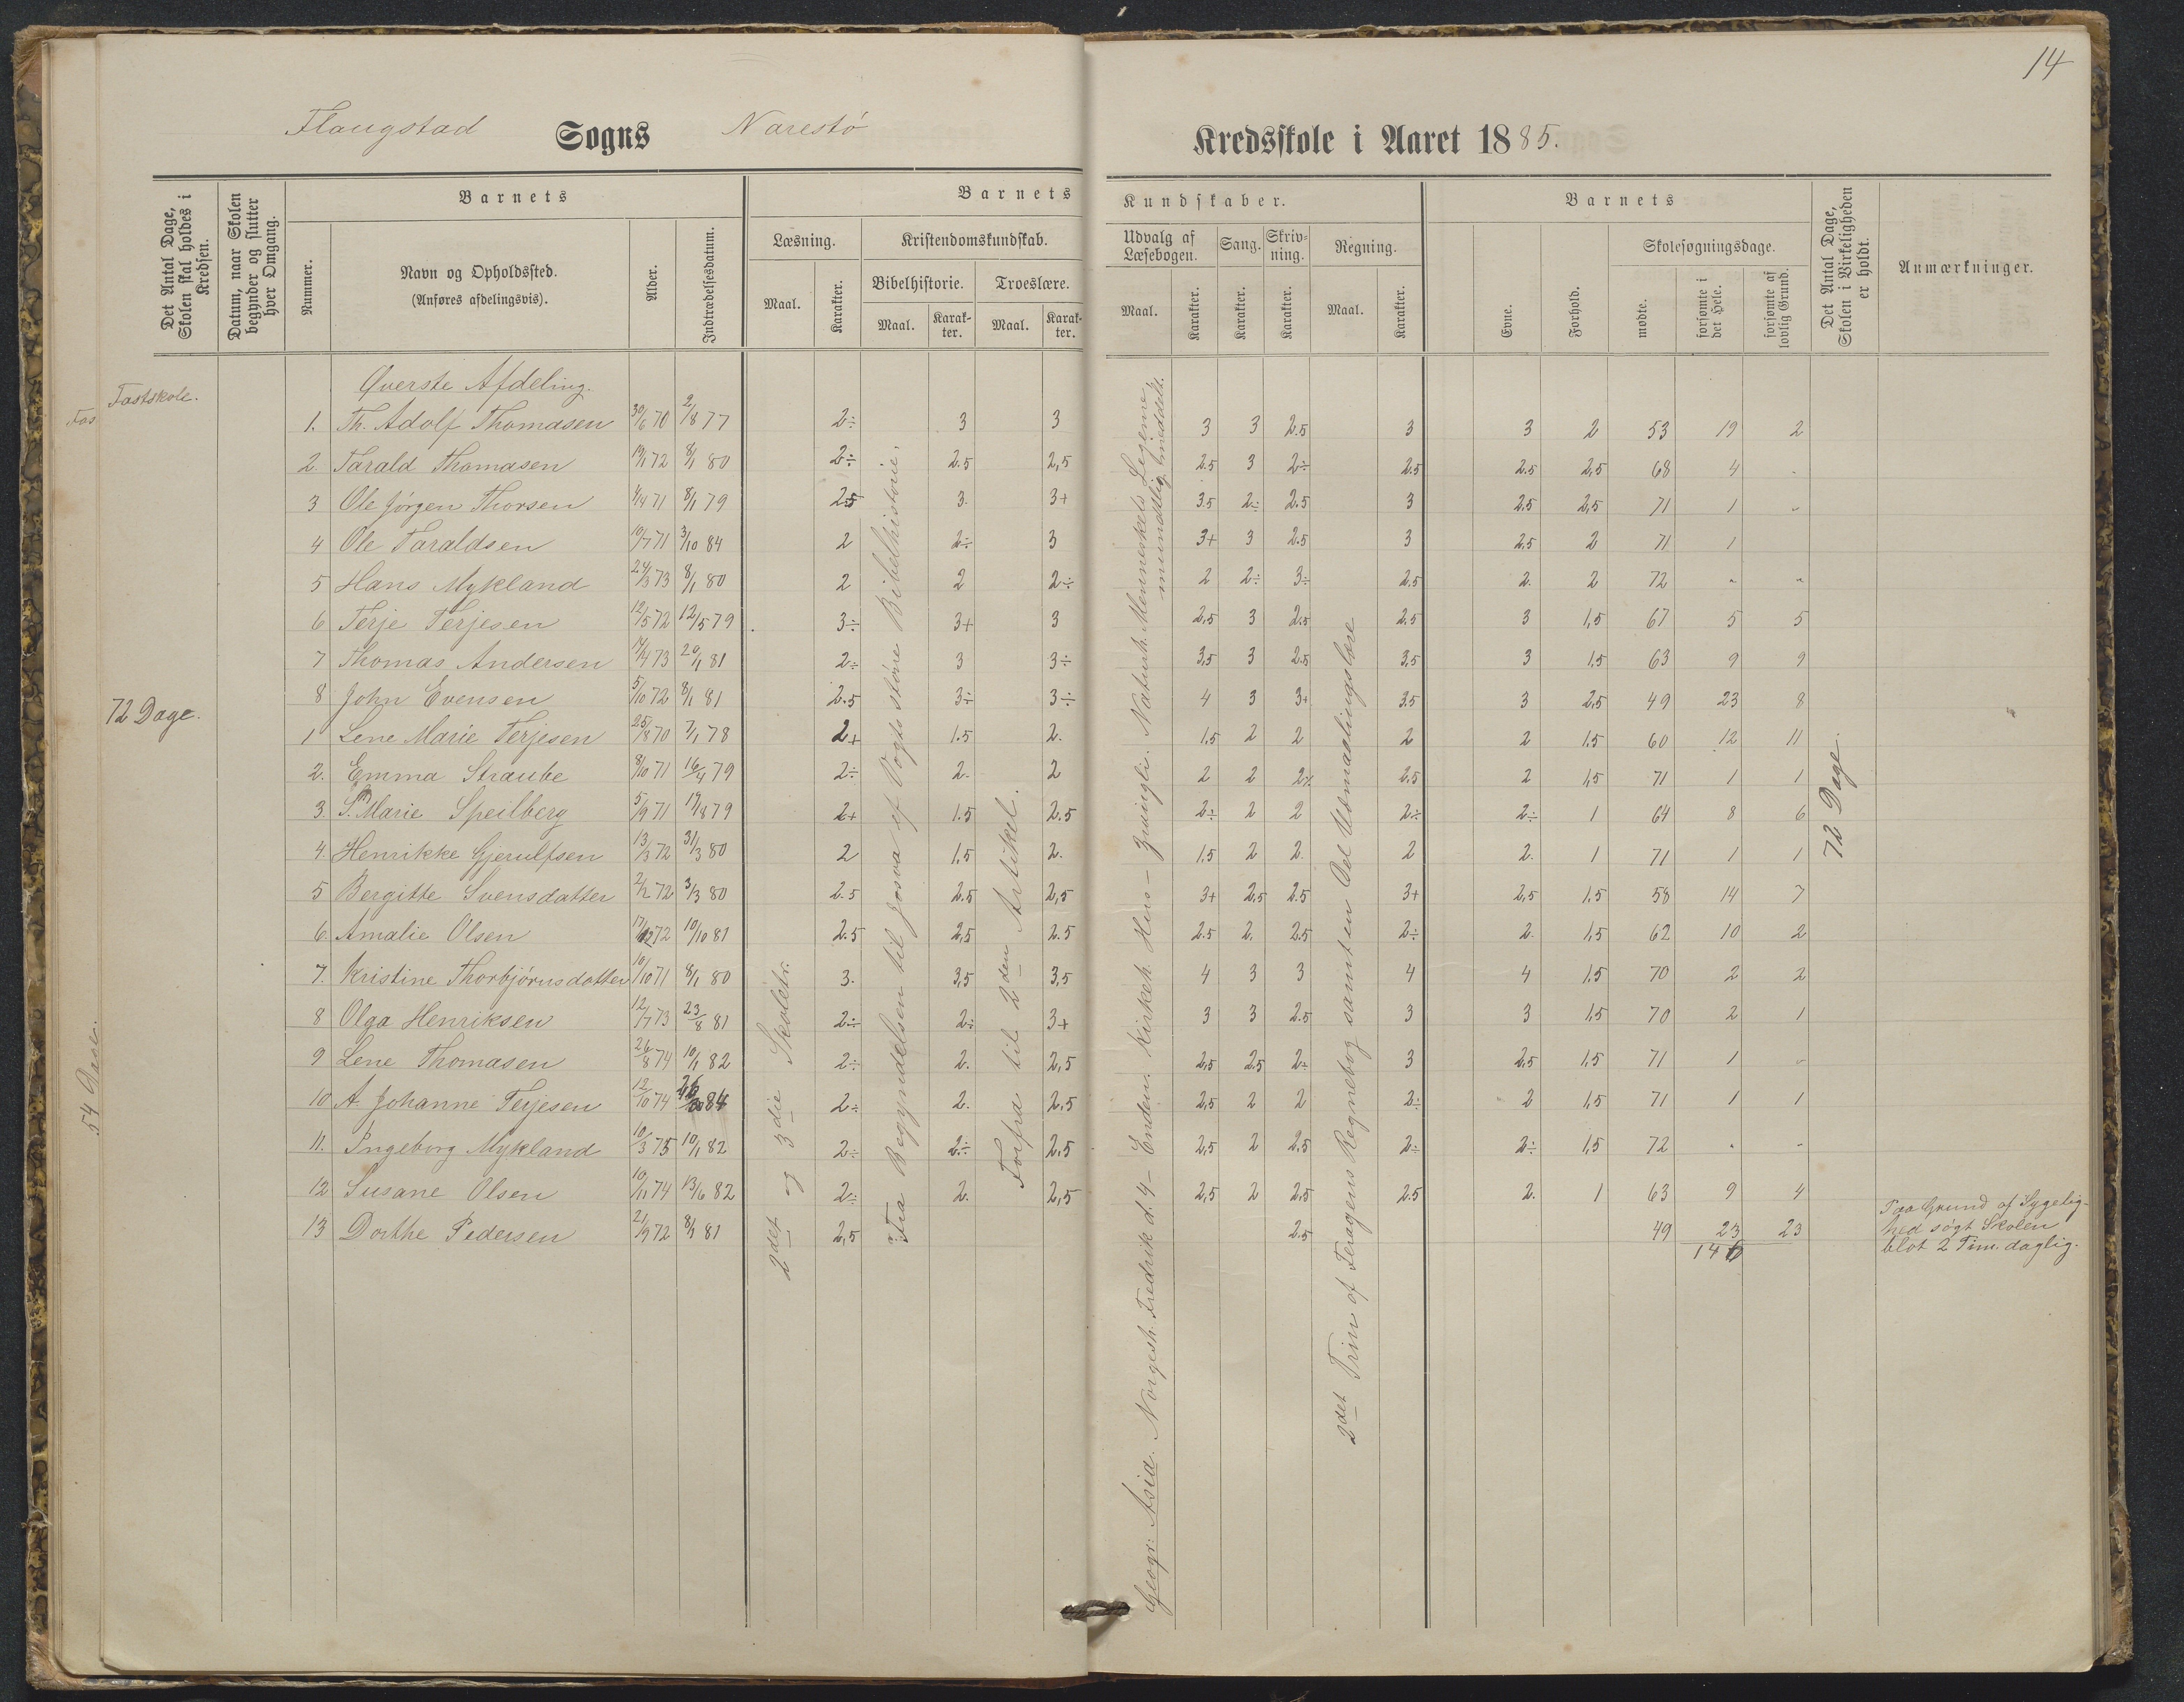 14
Flaugstad Sogns Narestø Kredsskole i Aaret 1885.
Det Antal Dage, Skolen skal holdes i Kredsen.
Datum, naar Skolen begynder og slutter hver Omgang.
Barnets
Nummer.
Navn og Opholdssted.
(Anføres afdelingsvis).
Alder.
Indtrædelsesdatum.
Barnets Kundskaber.
Læsning.
Maal. Karakter.
Kristendomskundskab.
Bibelhistorie. Troeslære.
Maal. Karakter. Maal. Karakter.
Udvalg af Læsebogen. Sang. Skrivning. Regning.
Maal. Karakter. Karakter. Karakter. Maal. Karakter.
Barnets
Evne. Forhold.
Skolesøgningsdage.
mødte. forsømte i det Hele. forsømte af lovlig Grund.
Det Antal Dage, Skolen i Virkeligheden er holdt.
Anmærkninger.
Fastskole.
Fas
72 Dage.
54 Dage.
Øverste Afdeling.
1. Th. Adolf Thomasen 30/6 70 2/8 77 2÷ 3 3 3 3 2.5 3 3 2 53 19 2
2. Tarald Thomasen 19/1 72 8/1 80 2÷ 2.5 2,5 2.5 3 2÷ 2.5 2.5 2,5 68 4 -
3 Ole Jørgen Thorsen 4/4 71 8/1 79 2.5 3. 3+ 3.5 2÷ 2.5 3 2.5 2,5 71 1 -
4 Ole Taraldsen 10/7 71 3/10 84 2 2÷ 3 3+ 3 2.5 3 2,5 2 71 1
5 Hans Mykland 24/3 73 8/1 80 2 2 2÷ 2 2÷ 3÷ 2.5 2. 2 72 " "
6 Terje Terjesen 12/5 72 12/5 79 3÷ 3+ 3 2,5 3 2.5 2.5 3 1,5 67 5 5
7 Thomas Andersen 14/4 73 20/1 81 2÷ 3 3÷ 3,5 3 2.5 3,5 3 1.5 63 9 9
8 John Evensen 5/10 72 8/1 81 2.5 3÷ 3÷ 4 3 3+ 3.5 3 2,5 49 23 8
1 Lene Marie Terjesen 25/8 70 7/1 78 2+ 1.5 2. 1,5 2 2 2 2 1.5 60 12 11
2. Emma Straube 8/10 71 16/4 79 2÷ 2. 2 2 2 2÷ 2.5 2 1,5 71 1 1
3. S. Marie Speilberg 5/9 71 19/8 79 2+ 1.5 2.5 2÷ 2 2 2÷ 2÷ 1 64 8 6
4. Henrikke Gjerulfsen 13/3 72 31/3 80 2 1,5 2. 1,5 2 2. 2 2. 1 71 1 1
5 Bergitte Svensdatter 2/2 72 3/3 80 2.5 2.5 2,5 3+ 2,5 2.5 3+ 2,5 1.5 58 14 7
6 Amalie Olsen 17/12 72 10/10 81 2.5 2,5 2.5 2.5 2. 2.5 2÷ 2. 1,5 62 10 2
7. Kristine Thorbjørnsdatter 10/10 71 8/1 80 3. 3,5 3,5 4 3 3 4 4 1.5 70 2 2
8 Olga Henriksen 12/7 73 23/8 81 2÷ 2÷ 3+ 3 3 2.5 3 3 1,5 70 2 1
9 Lene Thomasen 26/8 74 10/1 82 2÷ 2. 2,5 2,5 2.5 2÷ 3 2,5 1,5 71 1 -
10 A. Johanne Terjesen 12/10 74 84 2÷ 2. 2,5 2,5 2 2 2÷ 2 1,5 71 1 1
11. Ingeborg Mykland 10/3 75 10/1 82 2÷ 2÷ 2.5 2,5 2 2.5 2÷ 2÷ 1,5 72 - -
12 Susane Olsen 10/11 74 13/6 82 2÷ 2. 2,5 2,5 2 2.5 2.5 2. 1 63 9 4
13 Dorthe Pedersen 21/9 72 8/1 81 2,5 2.5 49 23 23
146
Paa Grund af Sygelig-
hed søgt Skolen
blot 2 Tim. daglig.
2det og 3die Skoletr.
Fra Begyndelsen til Josva af Vogts større Bibelhistorie.
Forfra til 2den Artikel.
Geogr: Asia. Norgesh. Fredrik d. 4 - Enden. Kirkeh. Hus - Zwingli. Naturh. Menneskets Legeme
mundtlig meddelt.
2det Trin af Feragens Regnebog samt en Del Udmaalingslære
72 Dage.